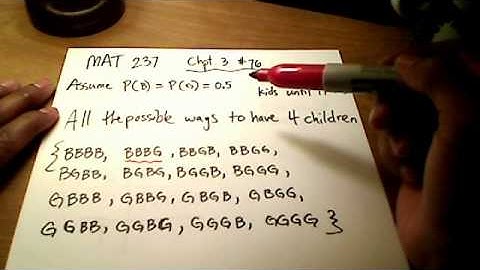 MAT 237 Chpt 3 #76
Assume P(B) = P(G) = 0.5
kids until
All the possible ways to have 4 children
{ BBBB, BBBG, BBGB, BBGG,
BGBB, BGBG, BGGB, BGGG,
GBBB, GBBG, GBGB, GBGG,
GGBB, GGBG, GGGB, GGGG }